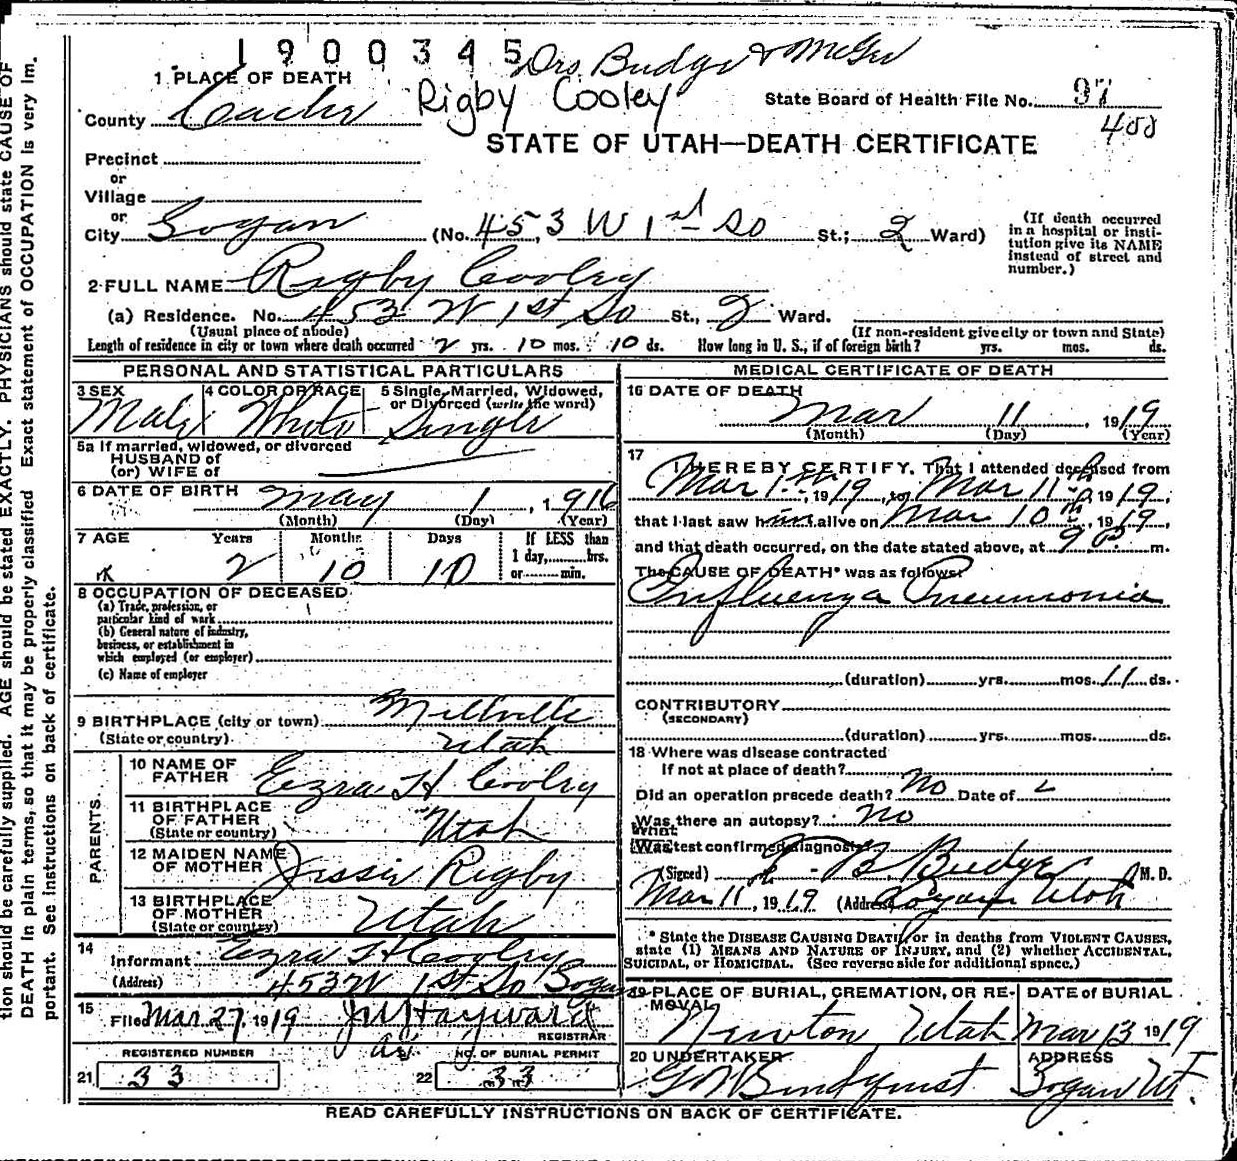 1900345
Drs. Budge & McGee
1 PLACE OF DEATH
Rigby Cooley
State Board of Health File No. 97
County Cache
400
STATE OF UTAH—DEATH CERTIFICATE
Precinct
or
Village
or
City Logan (No. 453 W 1st So St.; 2 Ward)
(If death occurred in a hospital or institution give its NAME instead of street and number.)
2 FULL NAME Rigby Cooley
(a) Residence. No. 453 W 1st So St., 2 Ward.
(Usual place of abode) (If non-resident give city or town and State)
Length of residence in city or town where death occurred 2 yrs. 10 mos. 10 ds. How long in U. S., if of foreign birth? yrs. mos. ds.
PERSONAL AND STATISTICAL PARTICULARS
3 SEX 4 COLOR OR RACE 5 Single, Married, Widowed,
or Divorced (write the word)
Male White Single
5a If married, widowed, or divorced
HUSBAND of
(or) WIFE of
6 DATE OF BIRTH May 1, 1916
(Month) (Day) (Year)
7 AGE Years Months Days If LESS than
1 day,......hrs.
or......min.
2 10 10
8 OCCUPATION OF DECEASED
(a) Trade, profession, or
particular kind of work
(b) General nature of industry,
business, or establishment in
which employed (or employer)
(c) Name of employer
9 BIRTHPLACE (city or town) Millville
(State or country) Utah
PARENTS
10 NAME OF
FATHER Ezra H Cooley
11 BIRTHPLACE
OF FATHER
(State or country) Utah
12 MAIDEN NAME
OF MOTHER Jessie Rigby
13 BIRTHPLACE
OF MOTHER
(State or country) Utah
14
Informant Ezra H Cooley
(Address) 453 W 1st So Logan
15
Filed Mar 27, 1919 J M Hayward
REGISTRAR
REGISTERED NUMBER NO. OF BURIAL PERMIT
21 33 22 33
MEDICAL CERTIFICATE OF DEATH
16 DATE OF DEATH
Mar 11, 1919
(Month) (Day) (Year)
17
I HEREBY CERTIFY, That I attended deceased from
Mar 1st, 1919, to Mar 11th, 1919,
that I last saw him alive on Mar 10th, 1919,
and that death occurred, on the date stated above, at 9 P m.
The CAUSE OF DEATH* was as follows:
Influenza Pneumonia
(duration) yrs. mos. 11 ds.
CONTRIBUTORY
(SECONDARY)
(duration) yrs. mos. ds.
18 Where was disease contracted
If not at place of death?
Did an operation precede death? No Date of
Was there an autopsy? No
What test confirmed diagnosis?
(Signed) B. Budge M. D.
Mar 11, 1919 (Address) Logan Utah
* State the DISEASE CAUSING DEATH, or in deaths from VIOLENT CAUSES,
state (1) MEANS AND NATURE OF INJURY, and (2) whether ACCIDENTAL,
SUICIDAL, or HOMICIDAL. (See reverse side for additional space.)
19 PLACE OF BURIAL, CREMATION, OR RE-
MOVAL
DATE of BURIAL
Newton, Utah Mar 13 1919
20 UNDERTAKER ADDRESS
G W Lindquist Logan UT.
READ CAREFULLY INSTRUCTIONS ON BACK OF CERTIFICATE.
tion should be carefully supplied. AGE should be stated EXACTLY. PHYSICIANS should state CAUSE OF
DEATH in plain terms, so that it may be properly classified Exact statement of OCCUPATION is very im-
portant. See instructions on back of certificate.